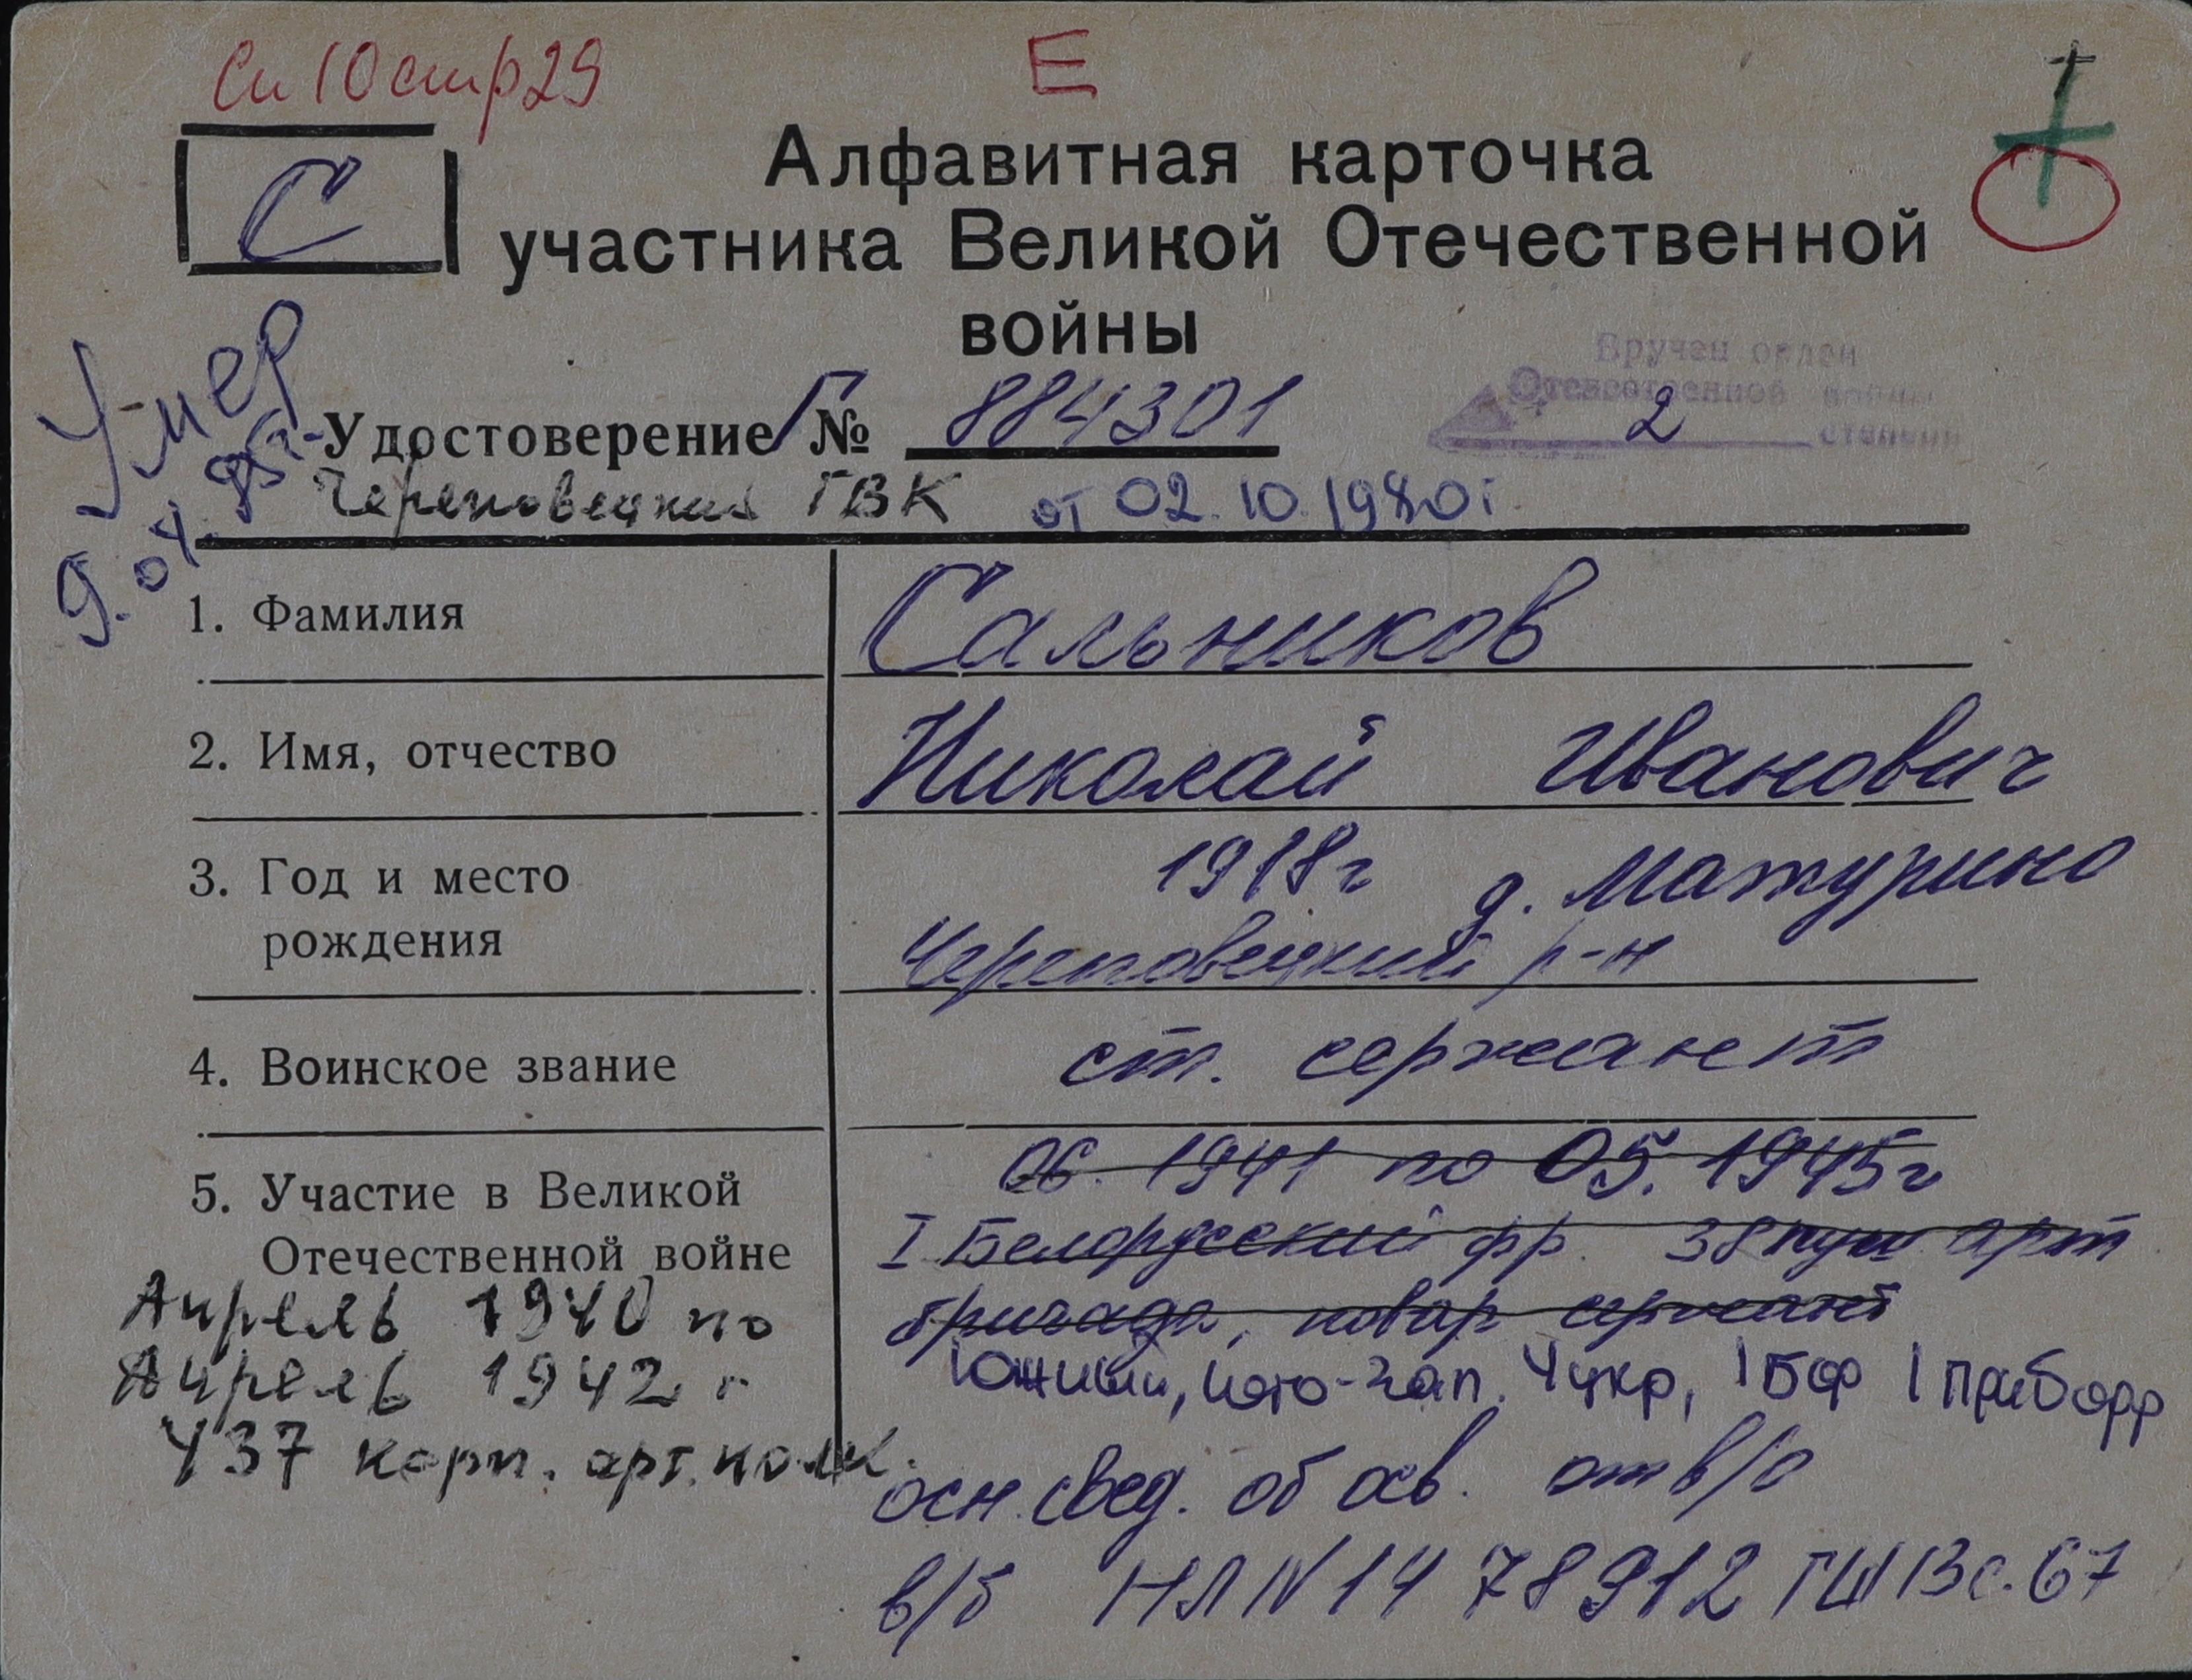 Сп 10 стр 29
Е
С
Алфавитная карточка
участника Великой Отечественной
войны
Умер
9.04.95г.
Вручен орден
Отечественной войны
2 степени
Удостоверение Г № 884301
Череповецкий ГВК от 02.10.1980г.
1. Фамилия
Сальников
2. Имя, отчество
Николай Иванович
3. Год и место
рождения
1918г д. Матурино
Череповецкий р-н
4. Воинское звание
ст. сержант
5. Участие в Великой
Отечественной войне
06. 1941 по 05. 1945г
I Белорусский фр. 38 пуш арт
бригада, повар сержант
Южный, юго-зап. 4укр, 1БФ 1 Приб фр
Апрель 1940 по
Апрель 1942 г
437 корп. арт. полк.
осн. свед. об осв. от в/о
в/б НЛ N 14 78912 ГШ 13 с. 67